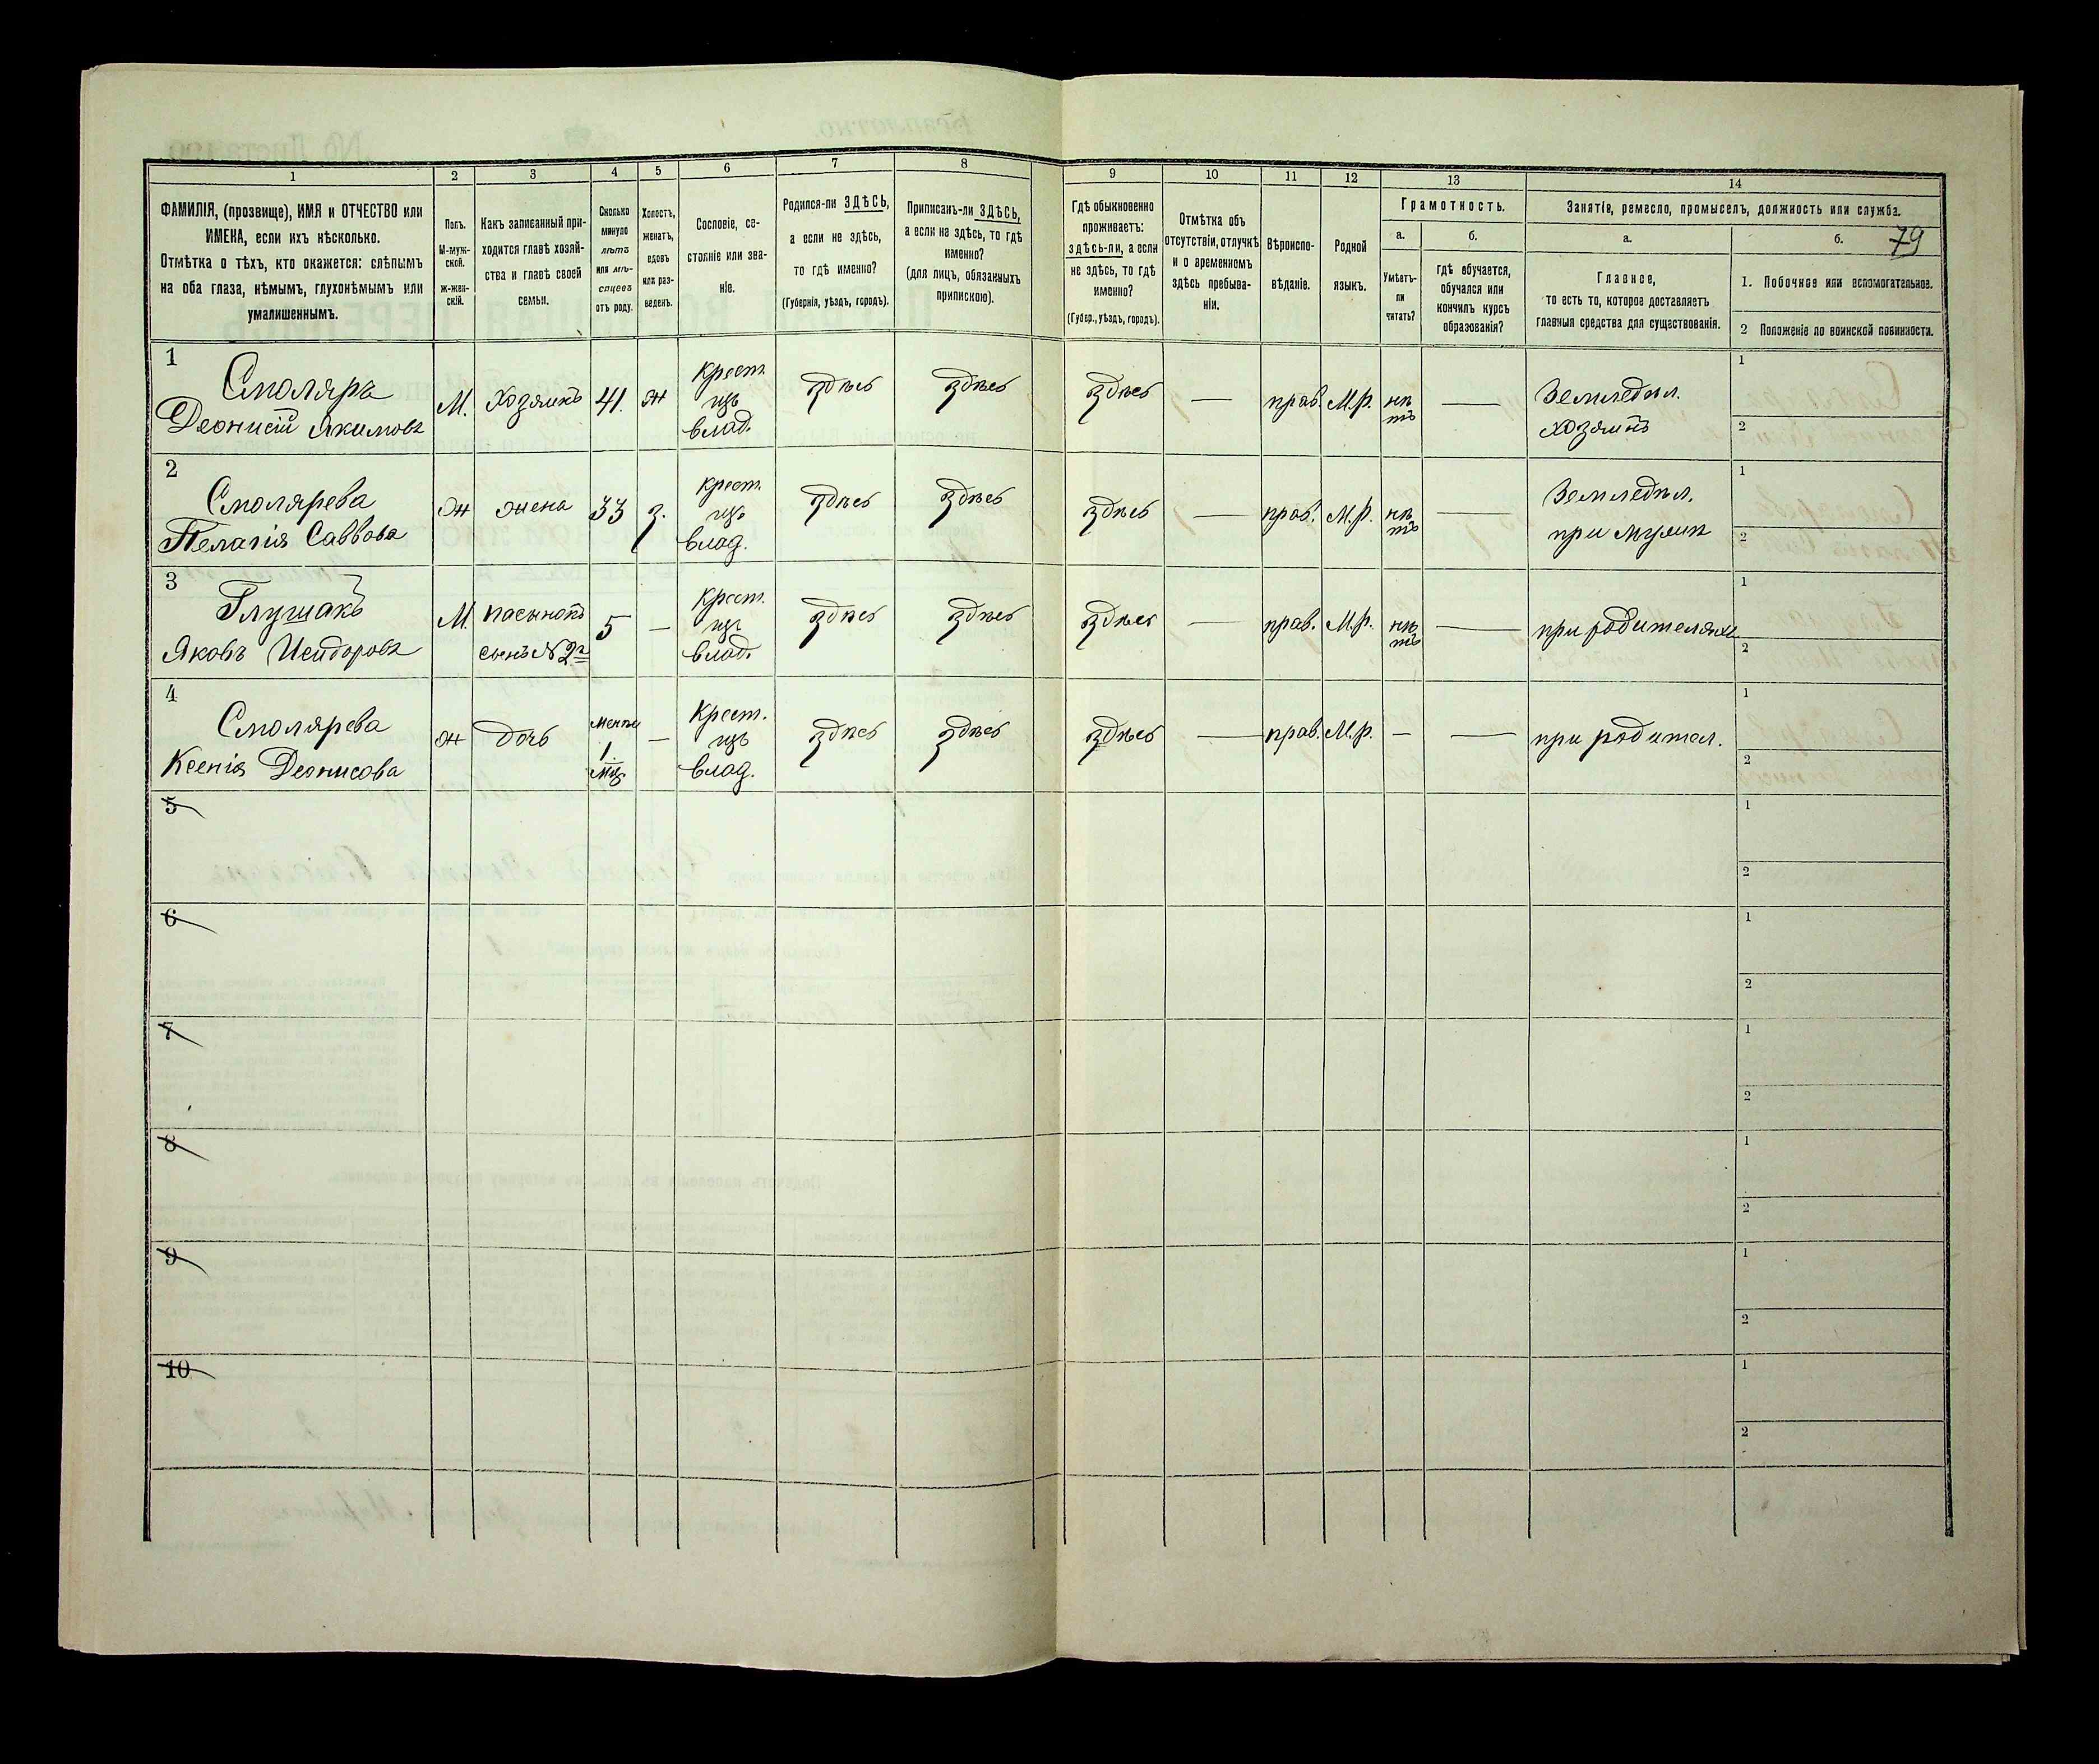 79
1 2 3 4 5 6 7 8 9 10 11 12 13 14
ФАМИЛІЯ, (прозвище), ИМЯ и ОТЧЕСТВО или
ИМЕНА, если ихъ нѣсколько.
Отмѣтка о тѣхъ, кто окажется: слѣпымъ
на оба глаза, нѣмымъ, глухонѣмымъ или
умалишеннымъ.
Полъ.
М-муж-
ской.
Ж-жен-
скій.
Какъ записанный при-
ходится главѣ хозяй-
ства и главѣ своей
семьи.
Сколько
минуло
лѣтъ
или мѣ-
сяцевъ
отъ роду.
Холостъ,
женатъ,
вдовъ
или раз-
веденъ.
Сословіе, со-
стояніе или зва-
ніе.
Родился-ли ЗДѢСЬ,
а если не здѣсь,
то гдѣ именно?
(Губернія, уѣздъ, городъ).
Приписанъ-ли ЗДѢСЬ,
а если не здѣсь, то гдѣ
именно?
(для лицъ, обязанныхъ
припискою).
Гдѣ обыкновенно
проживаетъ:
здѣсь-ли, а если
не здѣсь, то гдѣ
именно?
(Губер., уѣздъ, городъ).
Отмѣтка объ
отсутствіи, отлучкѣ
и о временномъ
здѣсь пребыва-
ніи.
Вѣроиспо-
вѣданіе.
Родной
языкъ.
Грамотность.
а.
Умѣетъ-
ли
читать?
б.
гдѣ обучается,
обучался или
кончилъ курсъ
образованія?
Занятіе, ремесло, промыселъ, должность или служба.
а.
Главное,
то есть то, которое доставляетъ
главныя средства для существованія.
б.
1. Побочное или вспомогательное.
2 Положеніе по воинской повинности.
1
Смоляръ
Деонисій Якимовъ
М. Хозяинъ 41. ж
крест.
изъ
влад.
здѣсь здѣсь здѣсь — прав. М.р. нѣ
тъ
—
Земледѣл.
хозяинъ
1
2
2
Смолярева
Пелагія Саввова
ж жена 33 з.
крест.
изъ
влад.
здѣсь здѣсь здѣсь — прав. М.р. нѣ
тъ
—
Земледѣл.
при мужѣ
1
2
3
Глушакъ
Яковъ Исидоровъ
М. пасынокъ
сынъ № 2го
5 —
Крест.
изъ
влад.
здѣсь здѣсь здѣсь — прав. М.р. нѣ
тъ
—
при родителяхъ
1
2
4
Смолярева
Ксенія Деонисова
ж дочь
менѣе
1
мѣс.
—
Крест.
изъ
влад.
здѣсь здѣсь здѣсь — прав. М.р. — —
при родител.
1
2
5
1
2
6
1
2
7
1
2
8
1
2
9
1
2
10
1
2